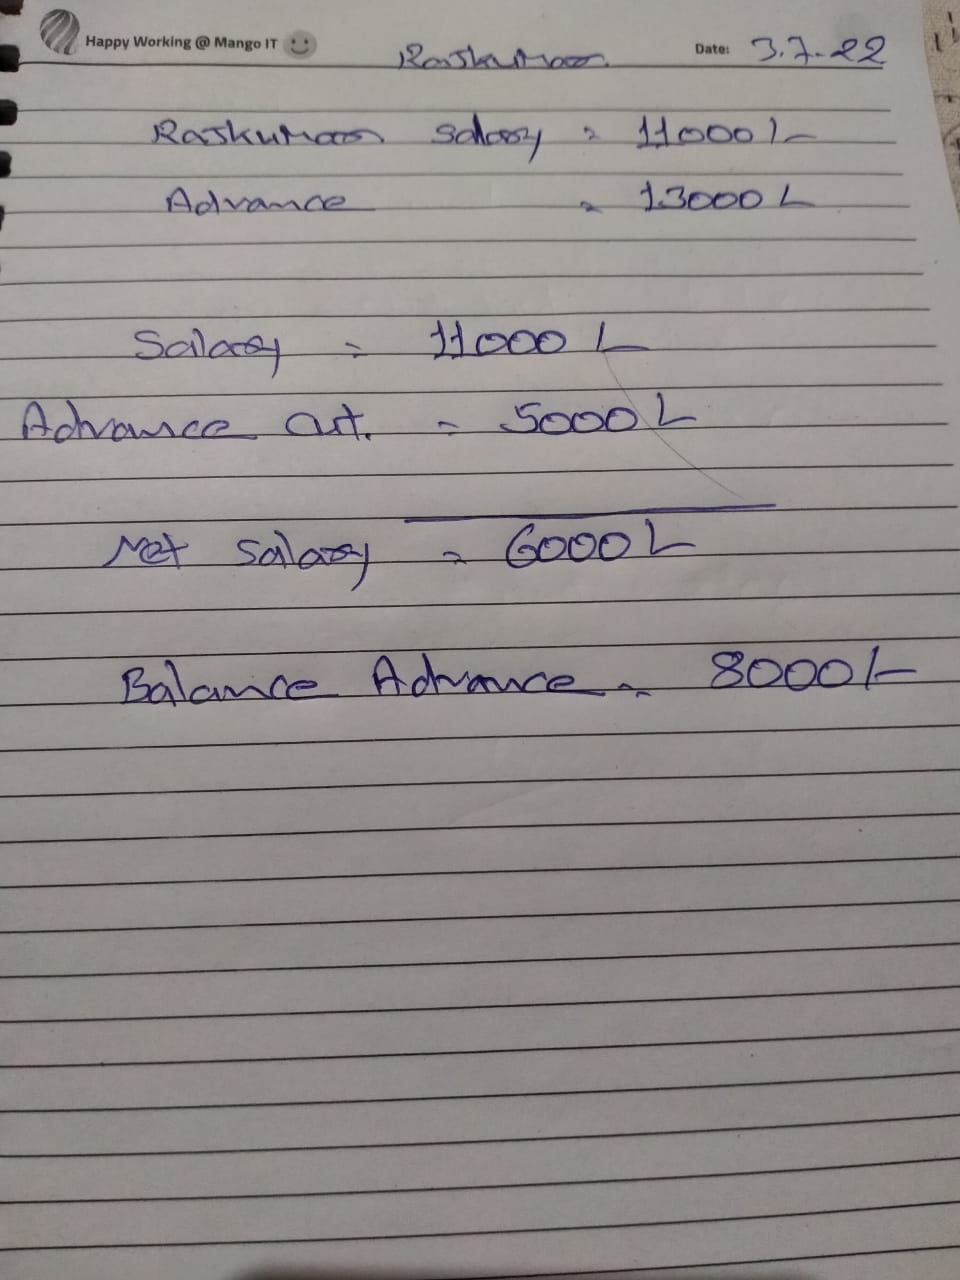 Happy Working @ Mango IT
Rajkumar Date: 3.7.22
Rajkumar Salary = 11000/-
Advance = 13000/-
Salary = 11000/-
Advance Cut. = 5000/-
Net Salary = 6000/-
Balance Advance = 8000/-